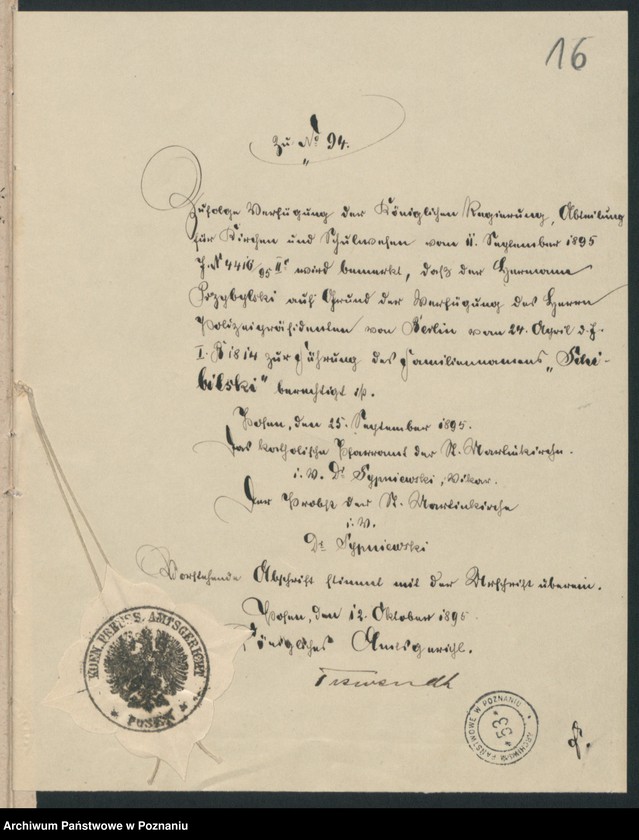 16
Zu No 94.
Zufolge Verfügung der Königlichen Regierung, Abteilung
für Kirchen und Schulwesen vom 11. September 1895
J. No 4416/95 IIc wird bemerkt, daß der Hermann
Przybylski auf Grund der Verfügung des Herrn
Polizeipräsidenten von Berlin vom 24. April d. J.
I. 1814 zur Führung des Familiennamens „Schi-
bilski“ berechtigt ist.
Posen, den 25. September 1895.
Das katholische Pfarramt der St. Martinkirche.
i. V. Dr Sypniewski, Vikar.
Der Probst der St. Martinkirche
i. V.
Dr Sypniewski
Vorstehende Abschrift stimmt mit der Urschrift überein.
Posen, den 12. Oktober 1895.
Königliches Amtsgericht.
KOEN. PREUSS. AMTSGERICHT
* POSEN *
ARCHIWUM PAŃSTWOWE W POZNANIU
* 53 *
Archiwum Państwowe w Poznaniu